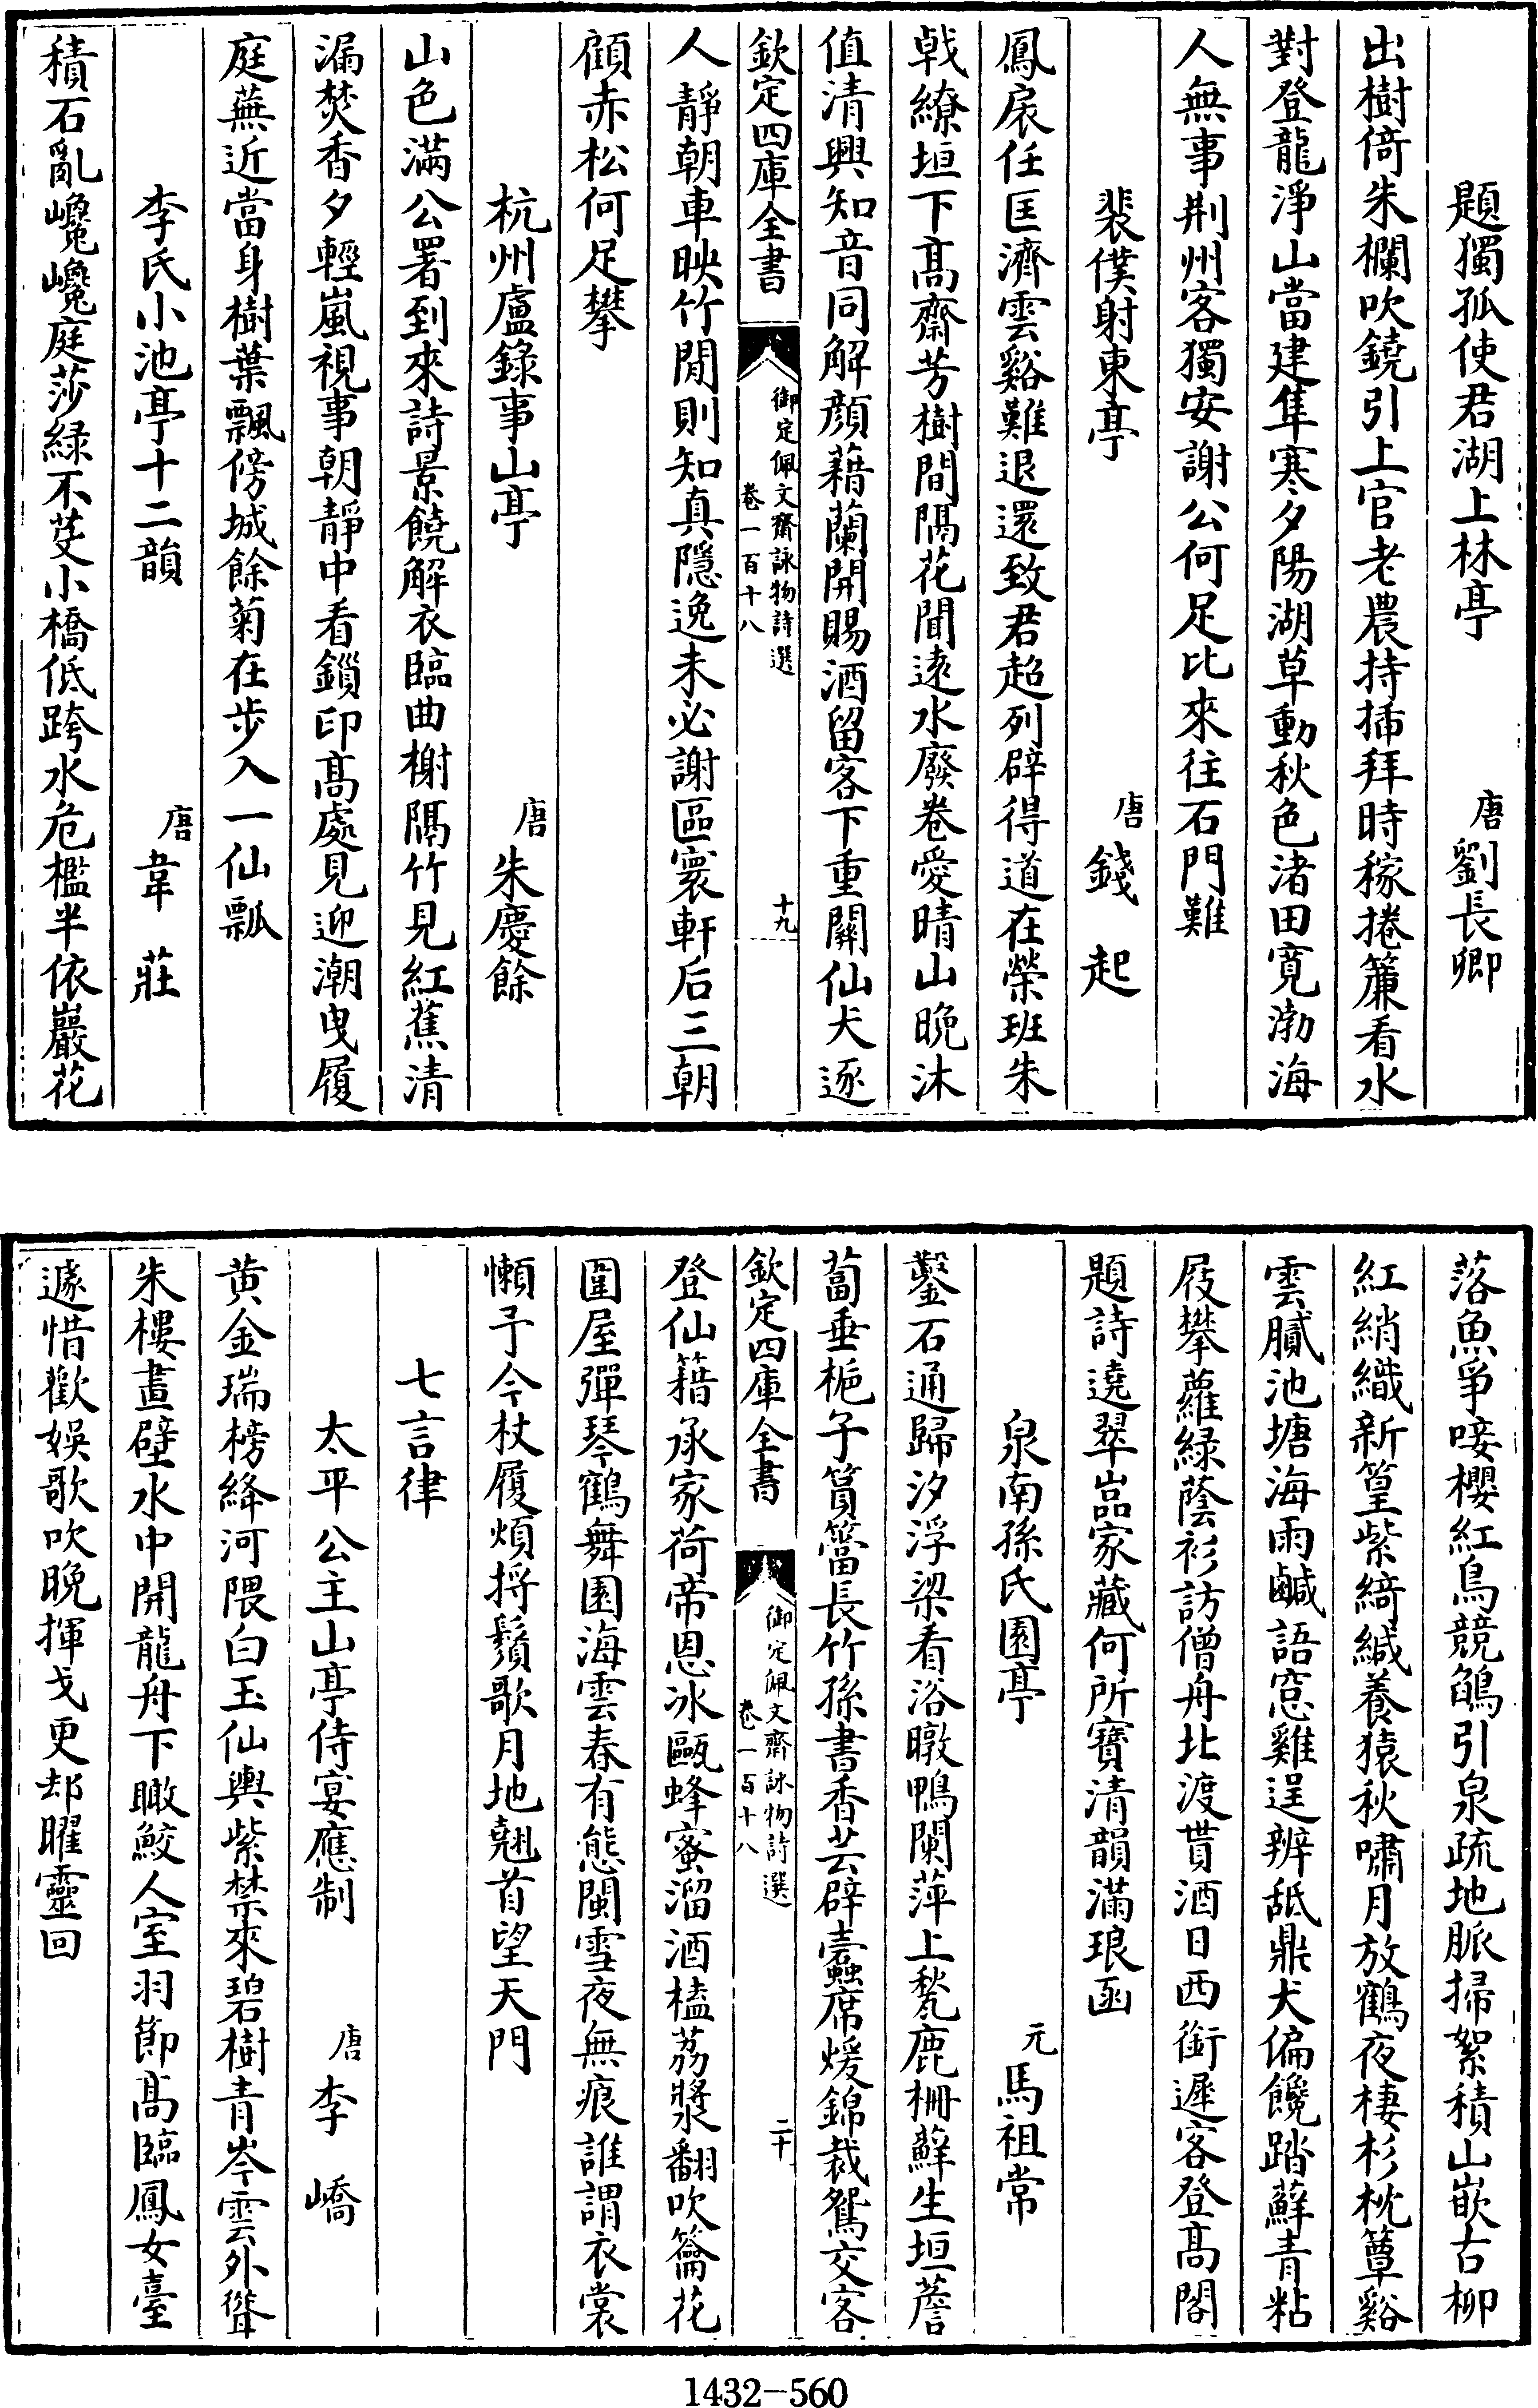 題獨孤使君湖上林亭　唐劉長卿
出樹倚朱欄吹鐃引上官老農持揷拜時稼捲簾看水
對登龍淨山當建隼寒夕陽湖草動秋色渚田寛渤海
人無事荆州客獨安謝公何足比來往石門難
裴僕射東亭　唐錢起
鳳扆任匡濟雲谿難退還致君超列辟得道在榮班朱
戟繚垣下髙齋芳樹間隔花聞逺水廢卷愛晴山晩沐
值清興知音同解顔藉蘭開賜酒留客下重關仙犬逐
欽定四庫全書　御定佩文齋詠物詩選卷一百十八　十九
人靜朝車映竹閒則知真隱逸未必謝區寰軒后三朝
顧赤松何足攀
杭州盧錄事山亭　唐朱慶餘
山色滿公署到來詩景饒解衣臨曲榭隔竹見紅蕉清
漏焚香夕輕嵐視事朝靜中看鎻印髙處見迎潮曳履
庭蕪近當身樹葉飄傍城餘菊在步入一仙瓢
李氏小池亭十二韻　唐韋莊
積石亂巉巉庭莎緑不芟小橋低跨水危檻半依巖花
落魚爭唼櫻紅鳥競鵮引泉疏地脈掃絮積山嵌古柳
紅綃織新篁紫綺緘養猿秋嘯月放鶴夜棲杉枕簟谿
雲膩池塘海雨鹹語窓雞逞辨舐鼎犬偏饞踏蘚青粘
屐攀蘿緑䕃衫訪僧舟北渡貰酒日西銜遲客登髙閣
題詩遶翠嵓家藏何所寶清韻滿琅函
泉南孫氏園亭　元馬祖常
鑿石通歸汐浮梁看浴暾鴨闌萍上甃鹿柵蘚生垣薝
蔔垂梔子篔簹長竹孫書香芸辟蠧席煖錦裁鴛交客
欽定四庫全書　御定佩文齋詠物詩選卷一百十八　二十
登仙籍承家荷帝恩冰甌蜂蜜溜酒榼荔漿翻吹籥花
圍屋彈琴鶴舞園海雲春有態閩雪夜無痕誰謂衣裳
懶于今杖履煩捋鬚歌月地翹首望天門
七言律
太平公主山亭侍宴應制　唐李嶠
黄金瑞榜絳河隈白玉仙輿紫禁來碧樹青岑雲外聳
朱樓畫壁水中開龍舟下瞰鮫人室羽節髙臨鳳女臺
遽惜歡娛歌吹晚揮戈更却曜靈回
1432-560